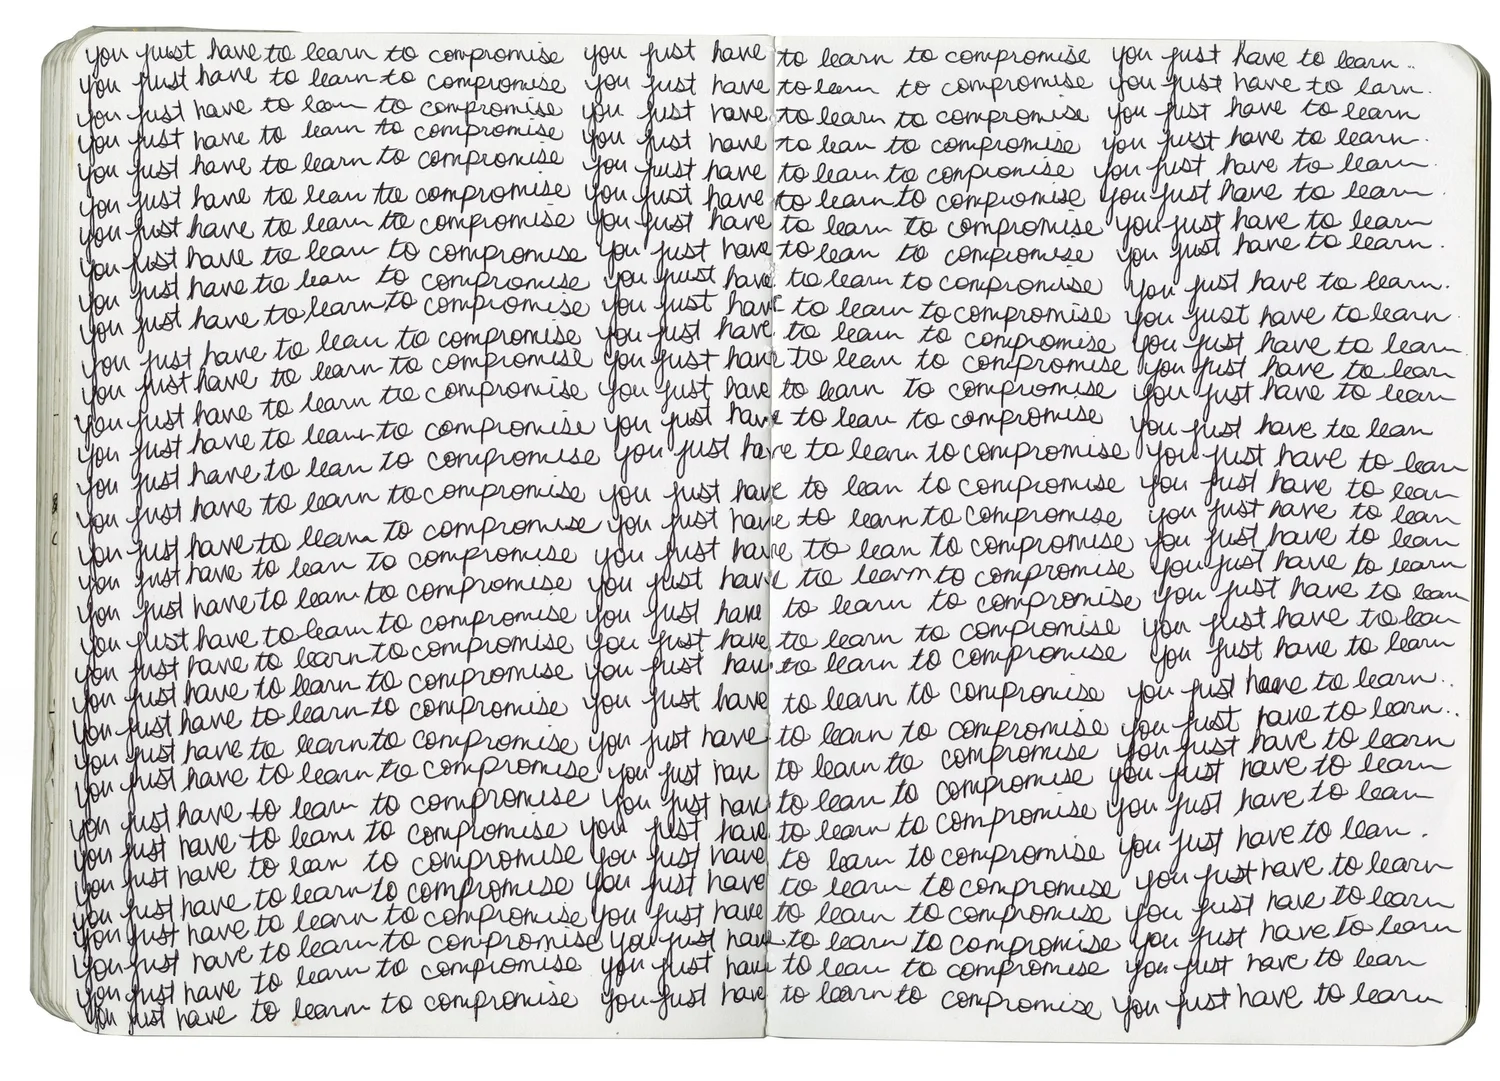 you just have to learn to compromise you just have to learn to compromise you just have to learn..
you just have to learn to compromise you just have to learn to compromise you just have to learn.
you just have to learn to compromise you just have to learn to compromise you just have to learn
you just have to learn to compromise you just have to learn to compromise you just have to learn.
you just have to learn to compromise you just have to learn to compromise you just have to learn.
you just have to learn to compromise you just have to learn to compromise you just have to learn.
you just have to learn to compromise you just have to learn to compromise you just have to learn
you just have to learn to compromise you just have to learn to compromise you just have to learn.
you just have to learn to compromise you just have to learn to compromise you just have to learn.
you just have to learn to compromise you just have to learn to compromise you just have to learn.
you just have to learn to compromise you just have to learn to compromise you just have to learn.
you just have to learn to compromise you just have to learn to compromise you just have to learn
you just have to learn to compromise you just have to learn to compromise you just have to learn
you just have to learn to compromise you just have to learn to compromise you just have to learn
you just have to learn to compromise you just have to learn to compromise you just have to learn
you just have to learn to compromise you just have to learn to compromise you just have to learn
you just have to learn to compromise you just have to learn to compromise you just have to learn
you just have to learn to compromise you just have to learn to compromise you just have to learn
you just have to learn to compromise you just have to learn to compromise you just have to learn
you just have to learn to compromise you just have to learn to compromise you just have to learn
you just have to learn to compromise you just have to learn to compromise you just have to learn
you just have to learn to compromise you just have to learn to compromise you just have to learn
you just have to learn to compromise you just have to learn to compromise you just have to learn..
you just have to learn to compromise you just have to learn to compromise you just have to learn..
you just have to learn to compromise you just have to learn to compromise you just have to learn
you just have to learn to compromise you just have to learn to compromise you just have to learn
you just have to learn to compromise you just have to learn to compromise you just have to learn
you just have to learn to compromise you just have to learn to compromise you just have to learn.
you just have to learn to compromise you just have to learn to compromise you just have to learn
you just have to learn to compromise you just have to learn to compromise you just have to learn
you just have to learn to compromise you just have to learn to compromise you just have to learn
you just have to learn to compromise you just have to learn to compromise you just have to learn
you just have to learn to compromise you just have to learn to compromise you just have to learn